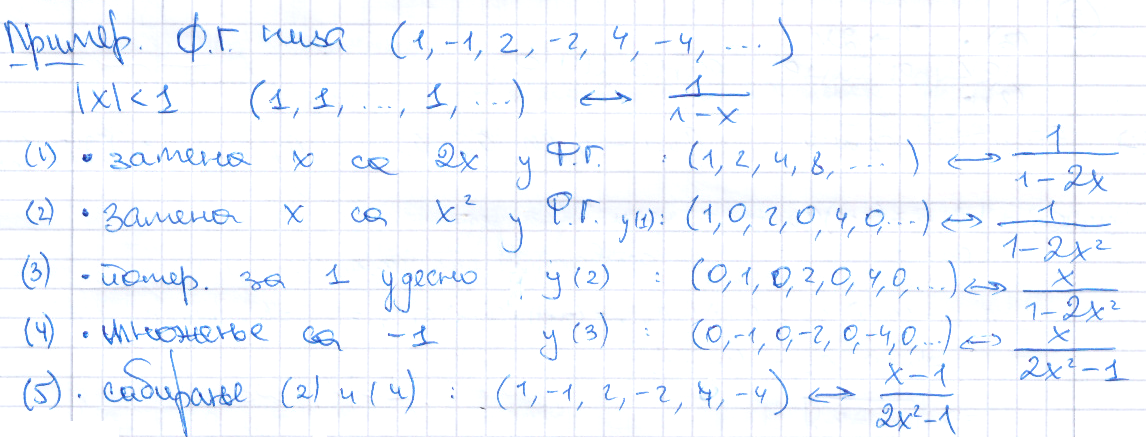 Пример. Ф.Г. низа (1, -1, 2, -2, 4, -4, ...)
|x| < 1 (1, 1, ..., 1, ...) ↔ 1/(1-x)
(1) • замена x са 2x у Ф.Г. : (1, 2, 4, 8, ...) ↔ 1/(1-2x)
(2) • замена x са x² у Ф.Г. у(1): (1, 0, 2, 0, 4, 0, ...) ↔ 1/(1-2x²)
(3) • помер. за 1 удесно у (2) : (0, 1, 0, 2, 0, 4, 0, ...) ↔ x/(1-2x²)
(4) • множење са -1 у (3) : (0, -1, 0, -2, 0, -4, 0, ...) ↔ x/(2x²-1)
(5) • сабирање (2) и (4) : (1, -1, 2, -2, 4, -4) ↔ (x-1)/(2x²-1)